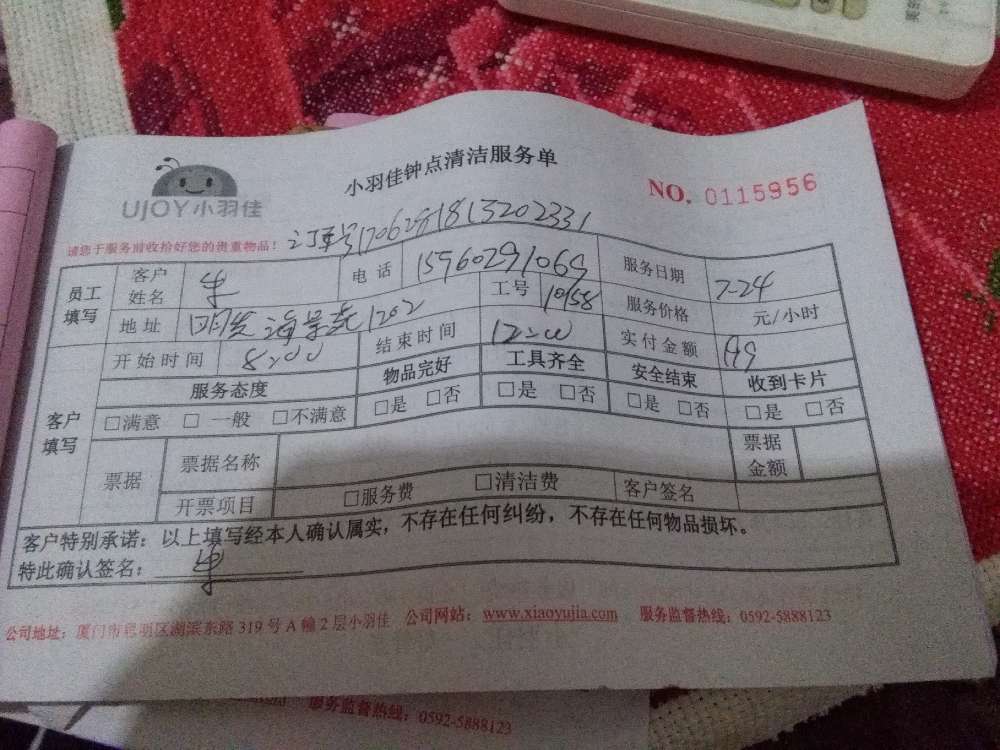 UJOY小羽佳
小羽佳钟点清洁服务单
NO. 0115956
请您于服务前收拾好您的贵重物品!
订单号1706281813202331
员工填写 客户姓名 牛 电话 15960291069 服务日期 7-24
地址 明发海景苑1202 工号 10158 服务价格 元/小时
开始时间 8:00 结束时间 12:00 实付金额
客户填写 服务态度 物品完好 工具齐全 安全结束 收到卡片
□满意 □ 一般 □不满意 □是 □否 □是 □否 □是 □否 □是 □否
票据 票据名称 票据金额
开票项目 □服务费 □清洁费 客户签名
客户特别承诺:以上填写经本人确认属实,不存在任何纠纷,不存在任何物品损坏。
特此确认签名: 牛
公司地址:厦门市思明区湖滨东路 319 号 A 幢 2 层小羽佳 公司网站: www.xiaoyujia.com 服务监督热线: 0592-5888123
服务监督热线: 0592-5888123